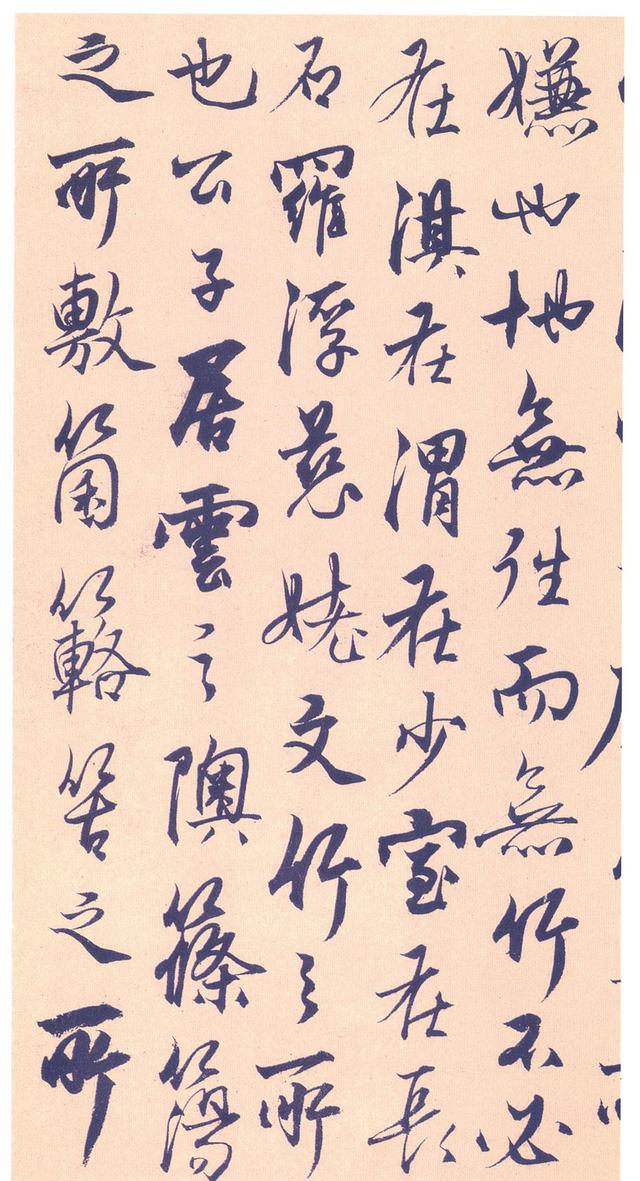 嫌也地無往而無竹不必
在淇在渭在少室在長
石羅浮慈姥文竹之所
也公子居雲之隩篠簜
之所敷箘簵之所